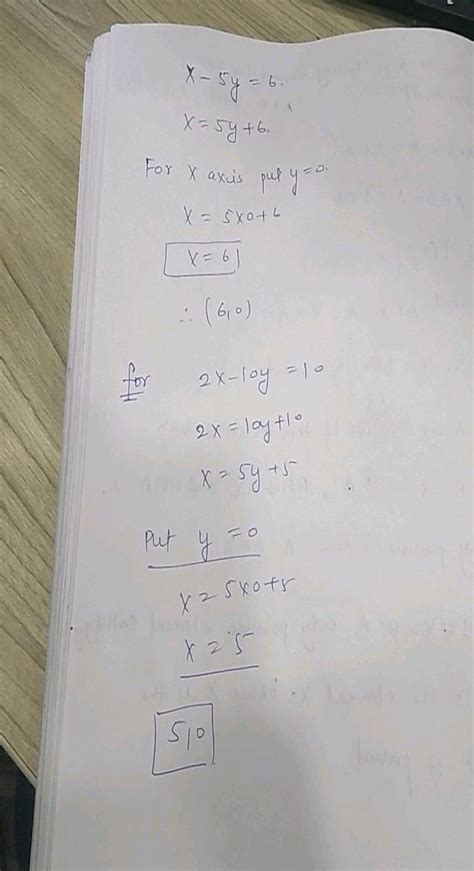 x - 5y = 6.
x = 5y + 6.
For x axis put y = 0.
x = 5x0 + 6
x = 6
∴ (6,0)
for 2x - 10y = 10
2x = 10y + 10
x = 5y + 5
Put y = 0
x = 5x0 + 5
x = 5
5,0